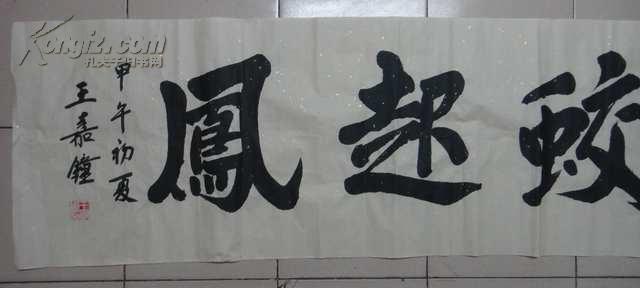 蛟起鳳
甲午初夏
王嘉
Kongfz.com
孔夫子旧书网